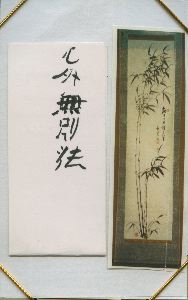 心外無別法